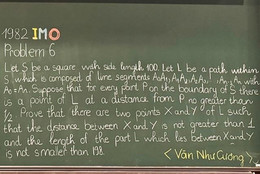 1982 IMO
Problem 6
Let S be a square with side length 100. Let L be a path within
S which is composed of line segments A₀A₁, A₁A₂, A₂A₃, ..., Aₙ₋₁Aₙ with
A₀ ≠ Aₙ. Suppose that for every point P on the boundary of S there
is a point of L at a distance from P no greater than
1/2. Prove that there are two points X and Y of L such
that the distance between X and Y is not greater than 1
and the length of the part L which lies between X and Y
is not smaller than 198.
< Văn Như Cương >